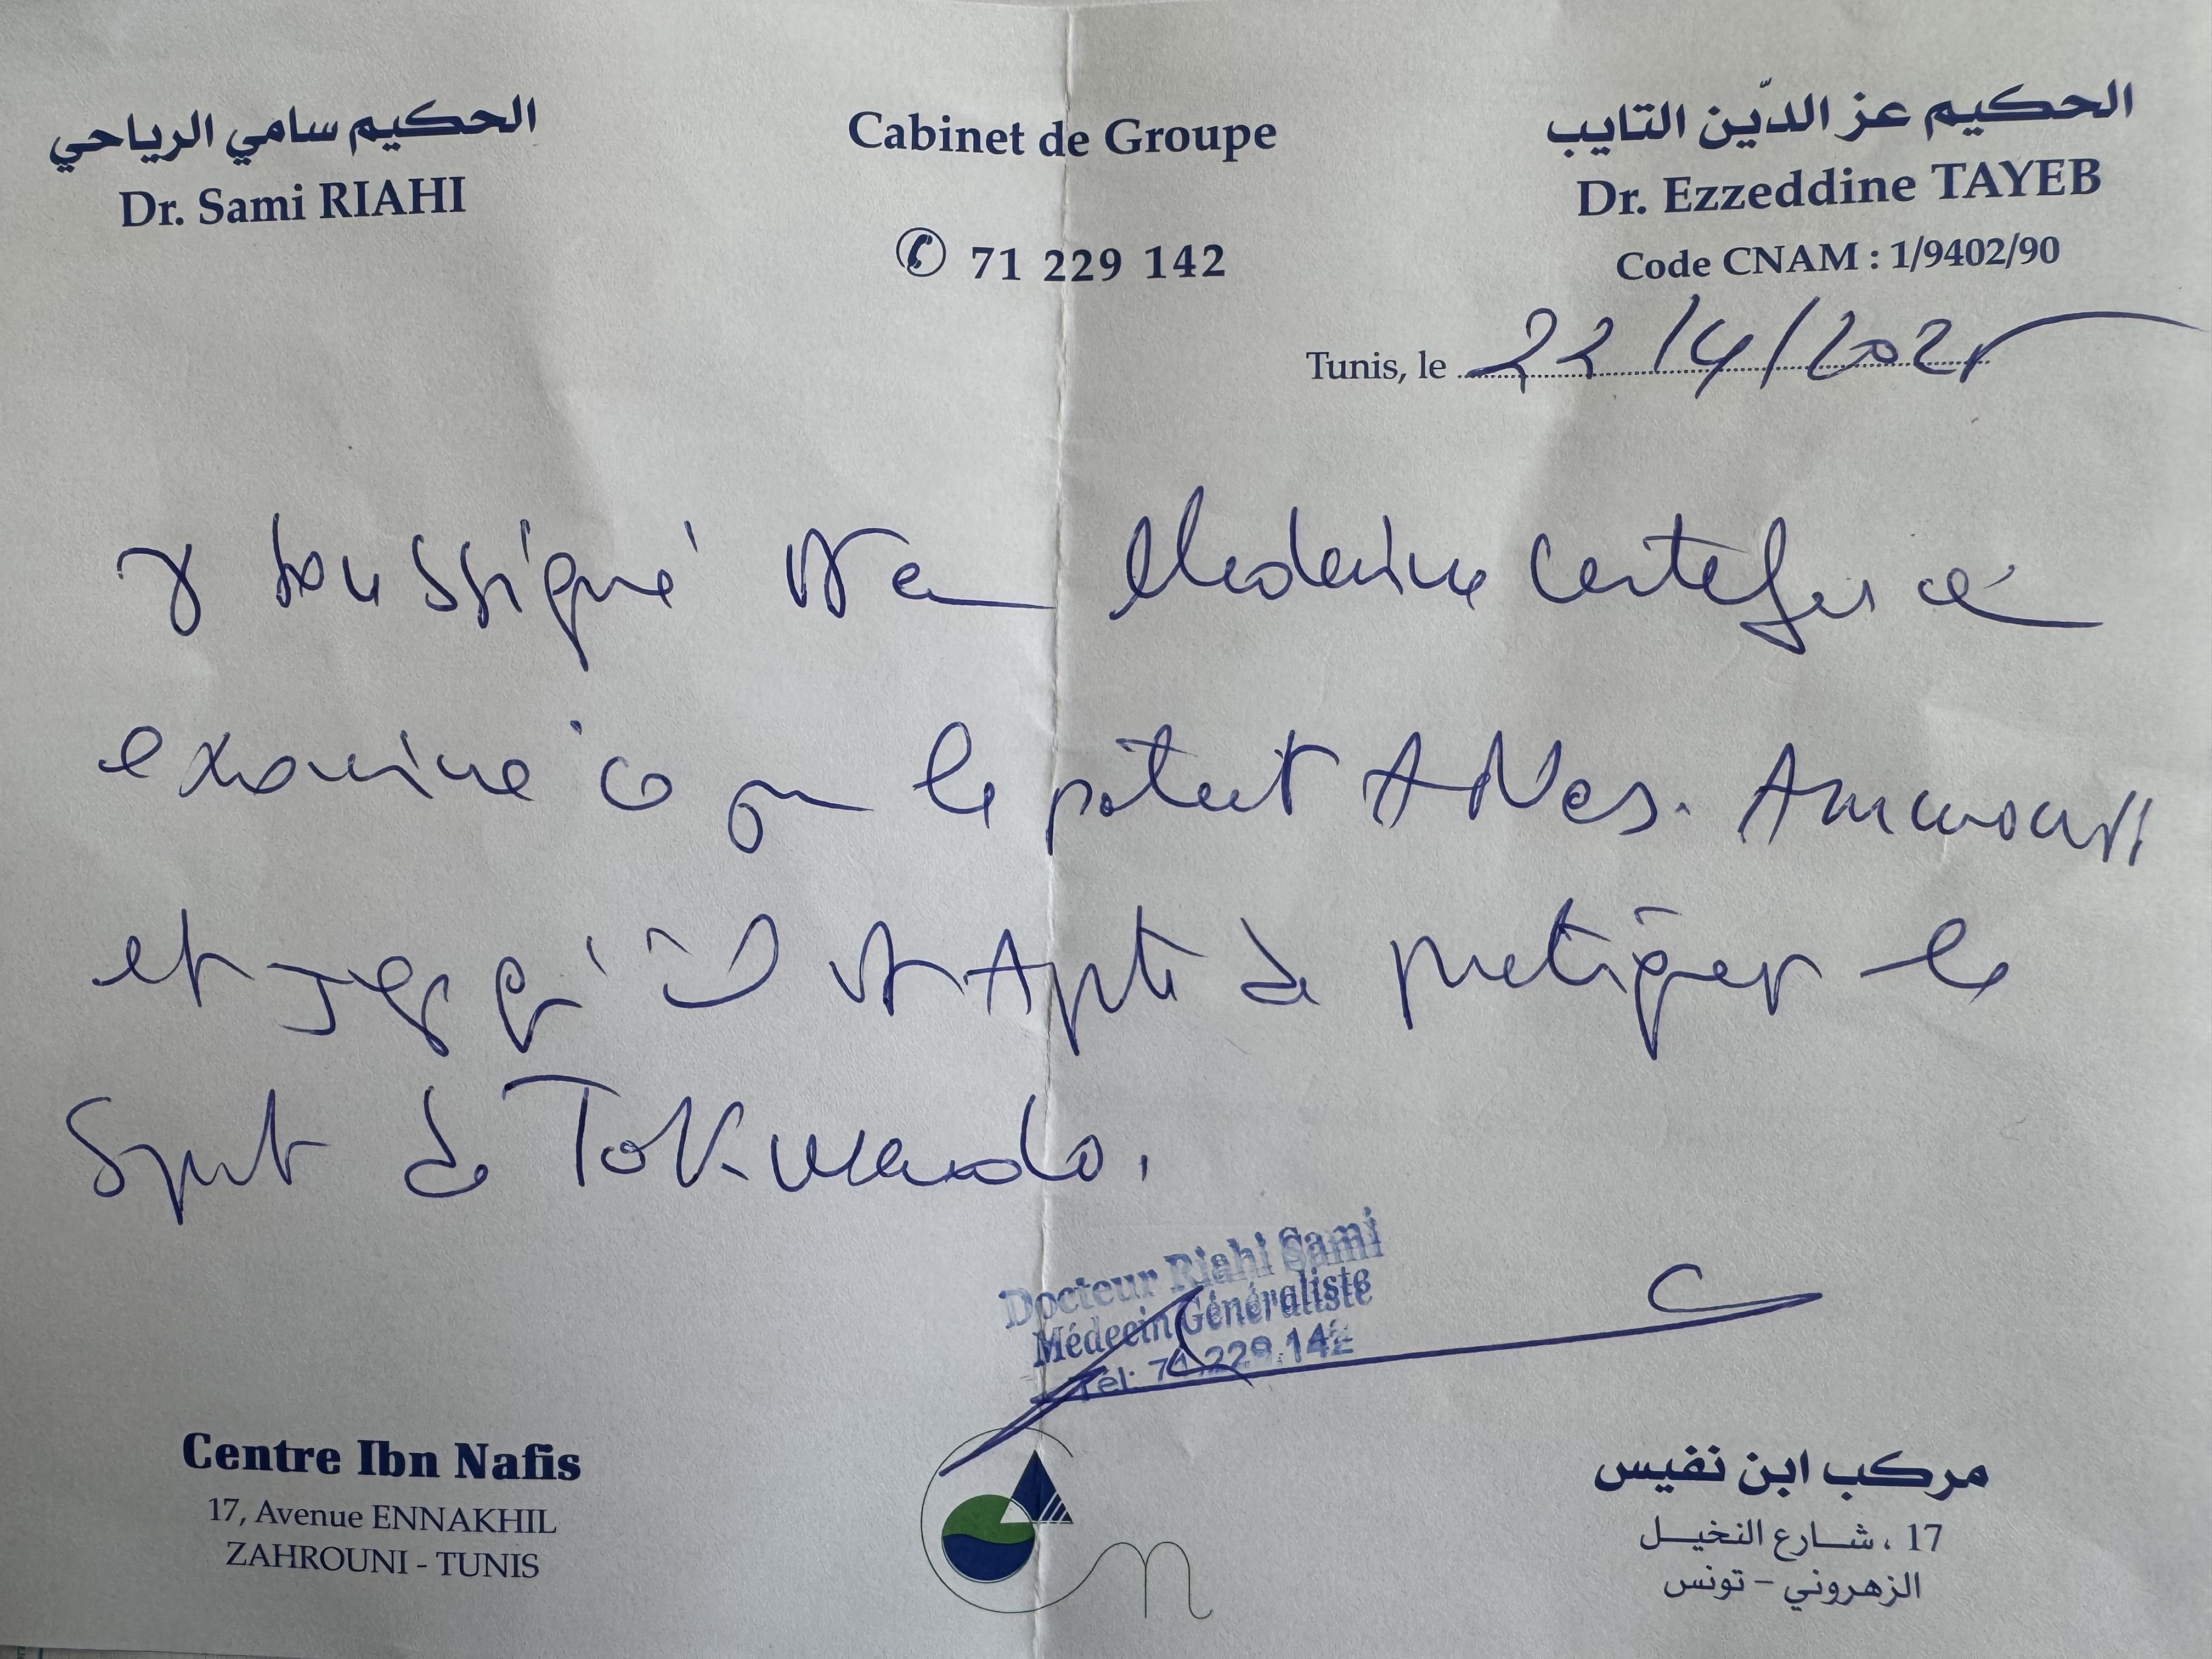 الحكيم سامي الرياحي
Dr. Sami RIAHI
Cabinet de Groupe
71 229 142
الحكيم عز الدّين التايب
Dr. Ezzeddine TAYEB
Code CNAM : 1/9402/90
Tunis, le 22/4/2025
soussigné Dr en Medecine certifie
examiné ce jour le patient
et juge qu'il est Apte de pratiquer le
Sport de Tokwando.
Docteur Riahi Sami
Médecin Généraliste
Tél: 71.229.142
Centre Ibn Nafis
17, Avenue ENNAKHIL
ZAHROUNI - TUNIS
مركب ابن نفيس
17 ، شارع النخيل
الزهروني - تونس